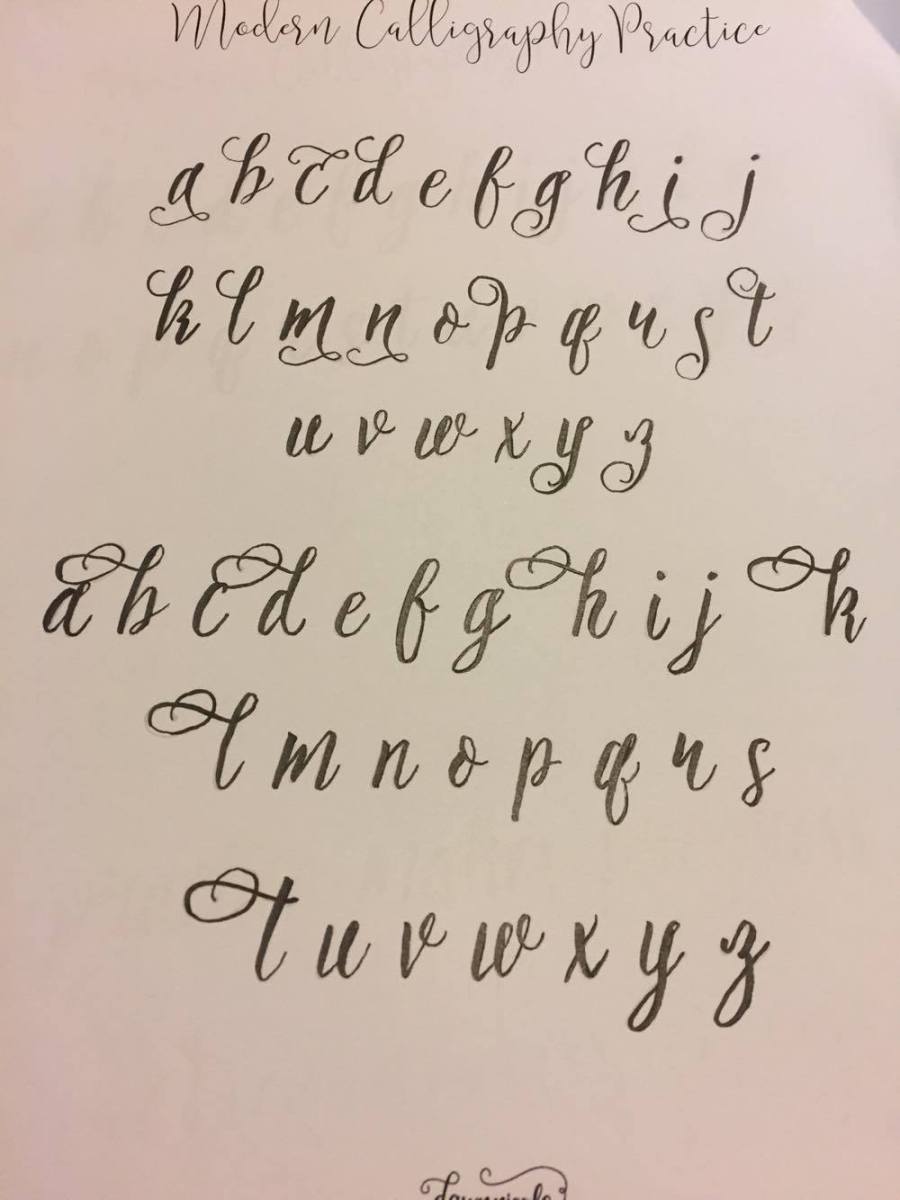 Modern Calligraphy Practice
a b c d e f g h i j
k l m n o p q r s t
u v w x y z
a b c d e f g h i j k
l m n o p q r s
t u v w x y z